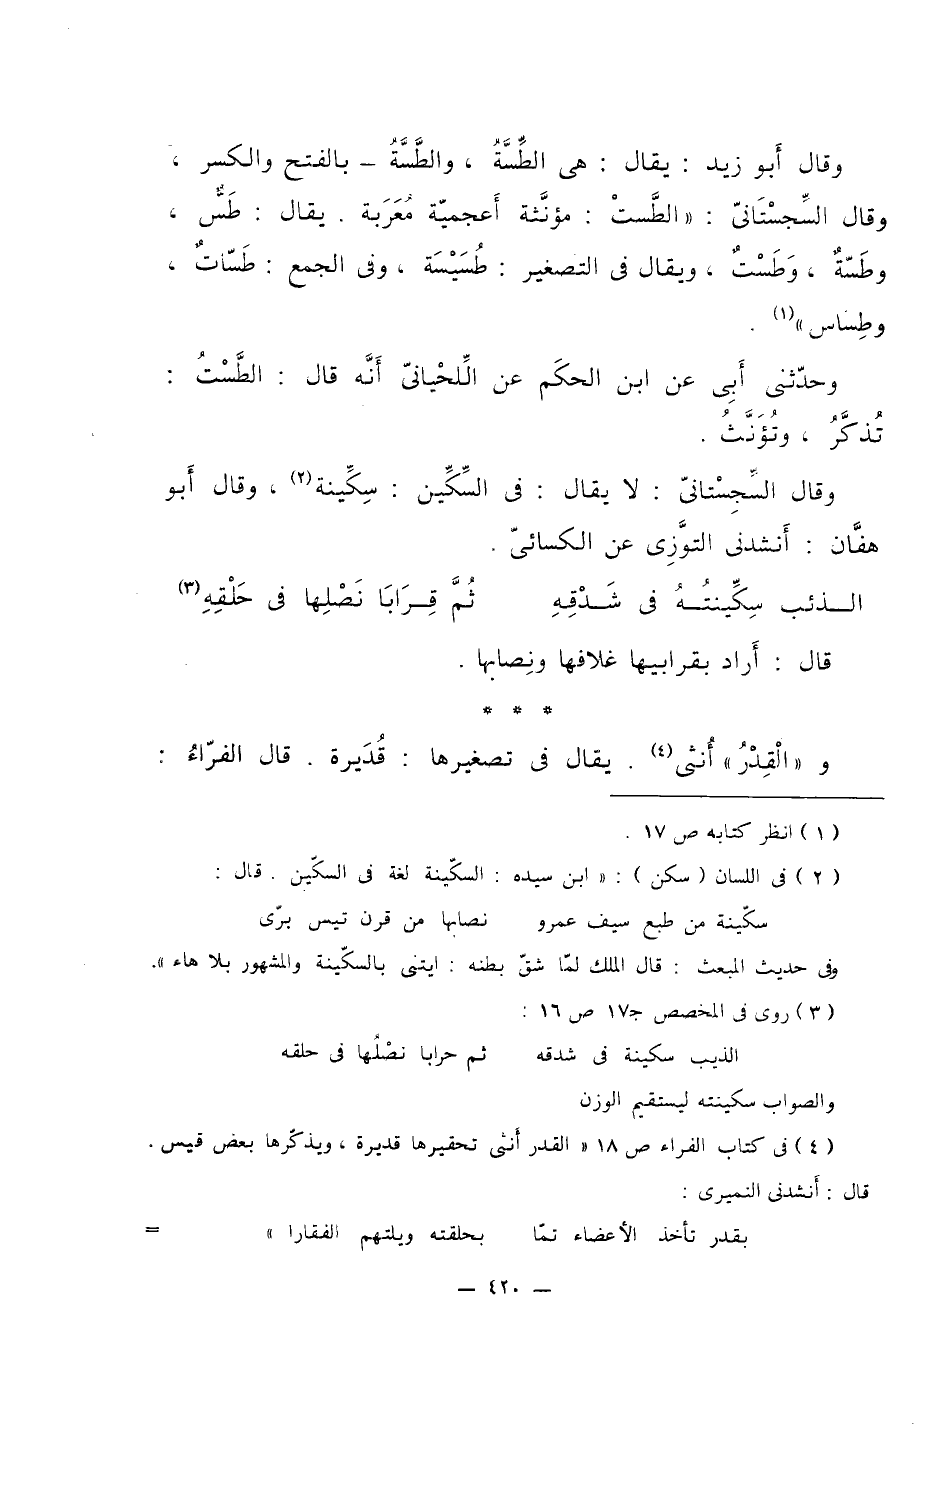 وقال أَبو زيد : يقال : هى الطِّسَّةُ ، والطَّسَّةُ – بالفتح والكسر ،
وقال السِّجِسْتَانىّ : « الطَّستْ : مؤنَّثة أَعجميّة مُعَرَبة . يقال : طَسٌّ ،
وطَسّةٌ ، وَطَسْتٌ ، ويقال فى التصغير : طُسَيْسَة ، وفى الجمع : طَسّاتٌ ،
وطِسَاس »(١) .
وحدّثنى أَبى عن ابن الحكَم عن اللِّحْيانىّ أَنَّه قال : الطَّسْتُ :
تُذكَّرُ ، وتُؤَنَّثُ .
وقال السِّجِسْتانىّ : لا يقال : فى السِّكِّين : سِكِّينة(٢) ، وقال أَبو
هفَّان : أَنشدنى التوَّزِى عن الكسائىّ .
الـذئب سِكِّينتُـهُ فى شَـدْقِهِ ثُمَّ قِـرَابَا نَصْلِها فى حَلْقِهِ(٣)
قال : أَراد بقرابيها غلافها ونِصابها .
* * *
و « الْقِدْرُ » أُنثى(٤) . يقال فى تصغيرها : قُدَيرة . قال الفرّاءُ :
(١) انظر كتابه ص ١٧ .
(٢) فى اللسان ( سكن ) : « ابن سيده : السكّينة لغة فى السكّين . قال :
سكّينة من طبع سيف عمرو نصابها من قرن تيس برّى
وفى حديث المبعث : قال الملك لمّا شقّ بطنه : ايتنى بالسكّينة والمشهور بلا هاء ».
(٣) روى فى المخصص جـ١٧ ص ١٦ :
الذيب سكينة فى شدقه ثم حرابا نصْلُها فى حلقه
والصواب سكينته ليستقيم الوزن
(٤) فى كتاب الفراء ص ١٨ « القدر أَنثى تحقيرها قديرة ، ويذكّرها بعض قيس .
قال : أَنشدنى النميرى :
بقدر تأخذ الأعضاء تمّا بحلقته ويلتهم الفقارا » =
– ٤٢٠ –